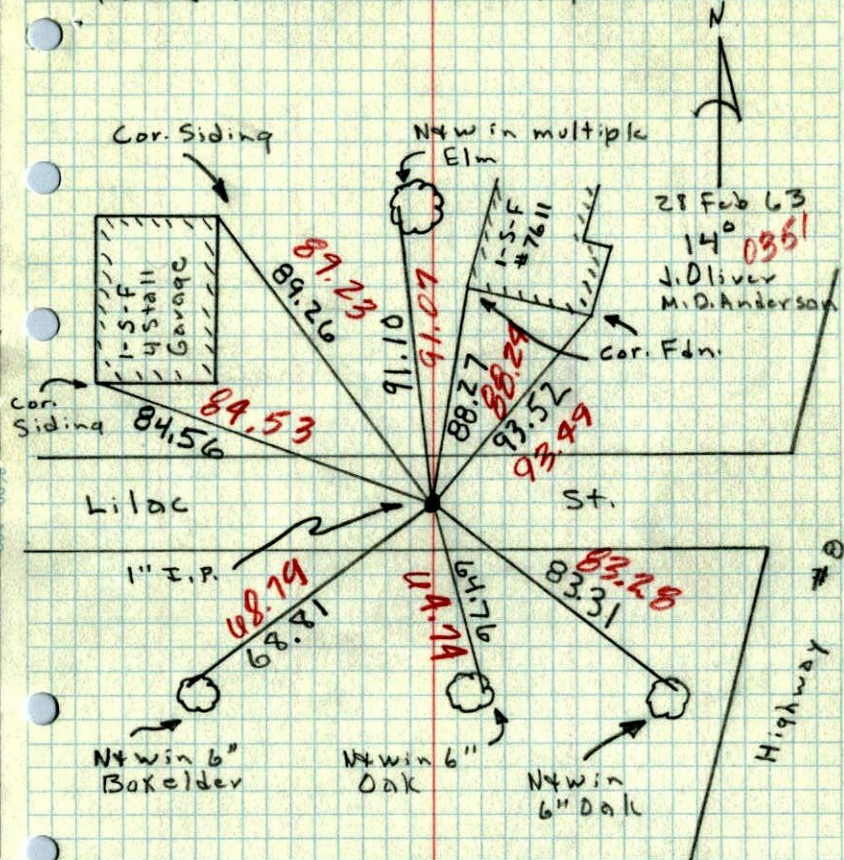 N
Cor. Siding
N&W in multiple
Elm
28 Feb 63
14° 0351
J. Oliver
M. D. Anderson
1-S-F
4 Stall
Garage
1-S-F
#7611
89.23
89.26
91.10
91.07
88.27
88.24
93.52
93.49
Cor. Fdn.
Cor.
Siding
84.53
84.56
Lilac St.
1" I.P.
68.79
68.81
64.74
64.76
83.28
83.31
Highway #8
N&W in 6"
Boxelder
N&W in 6"
Oak
N&W in
6" Oak